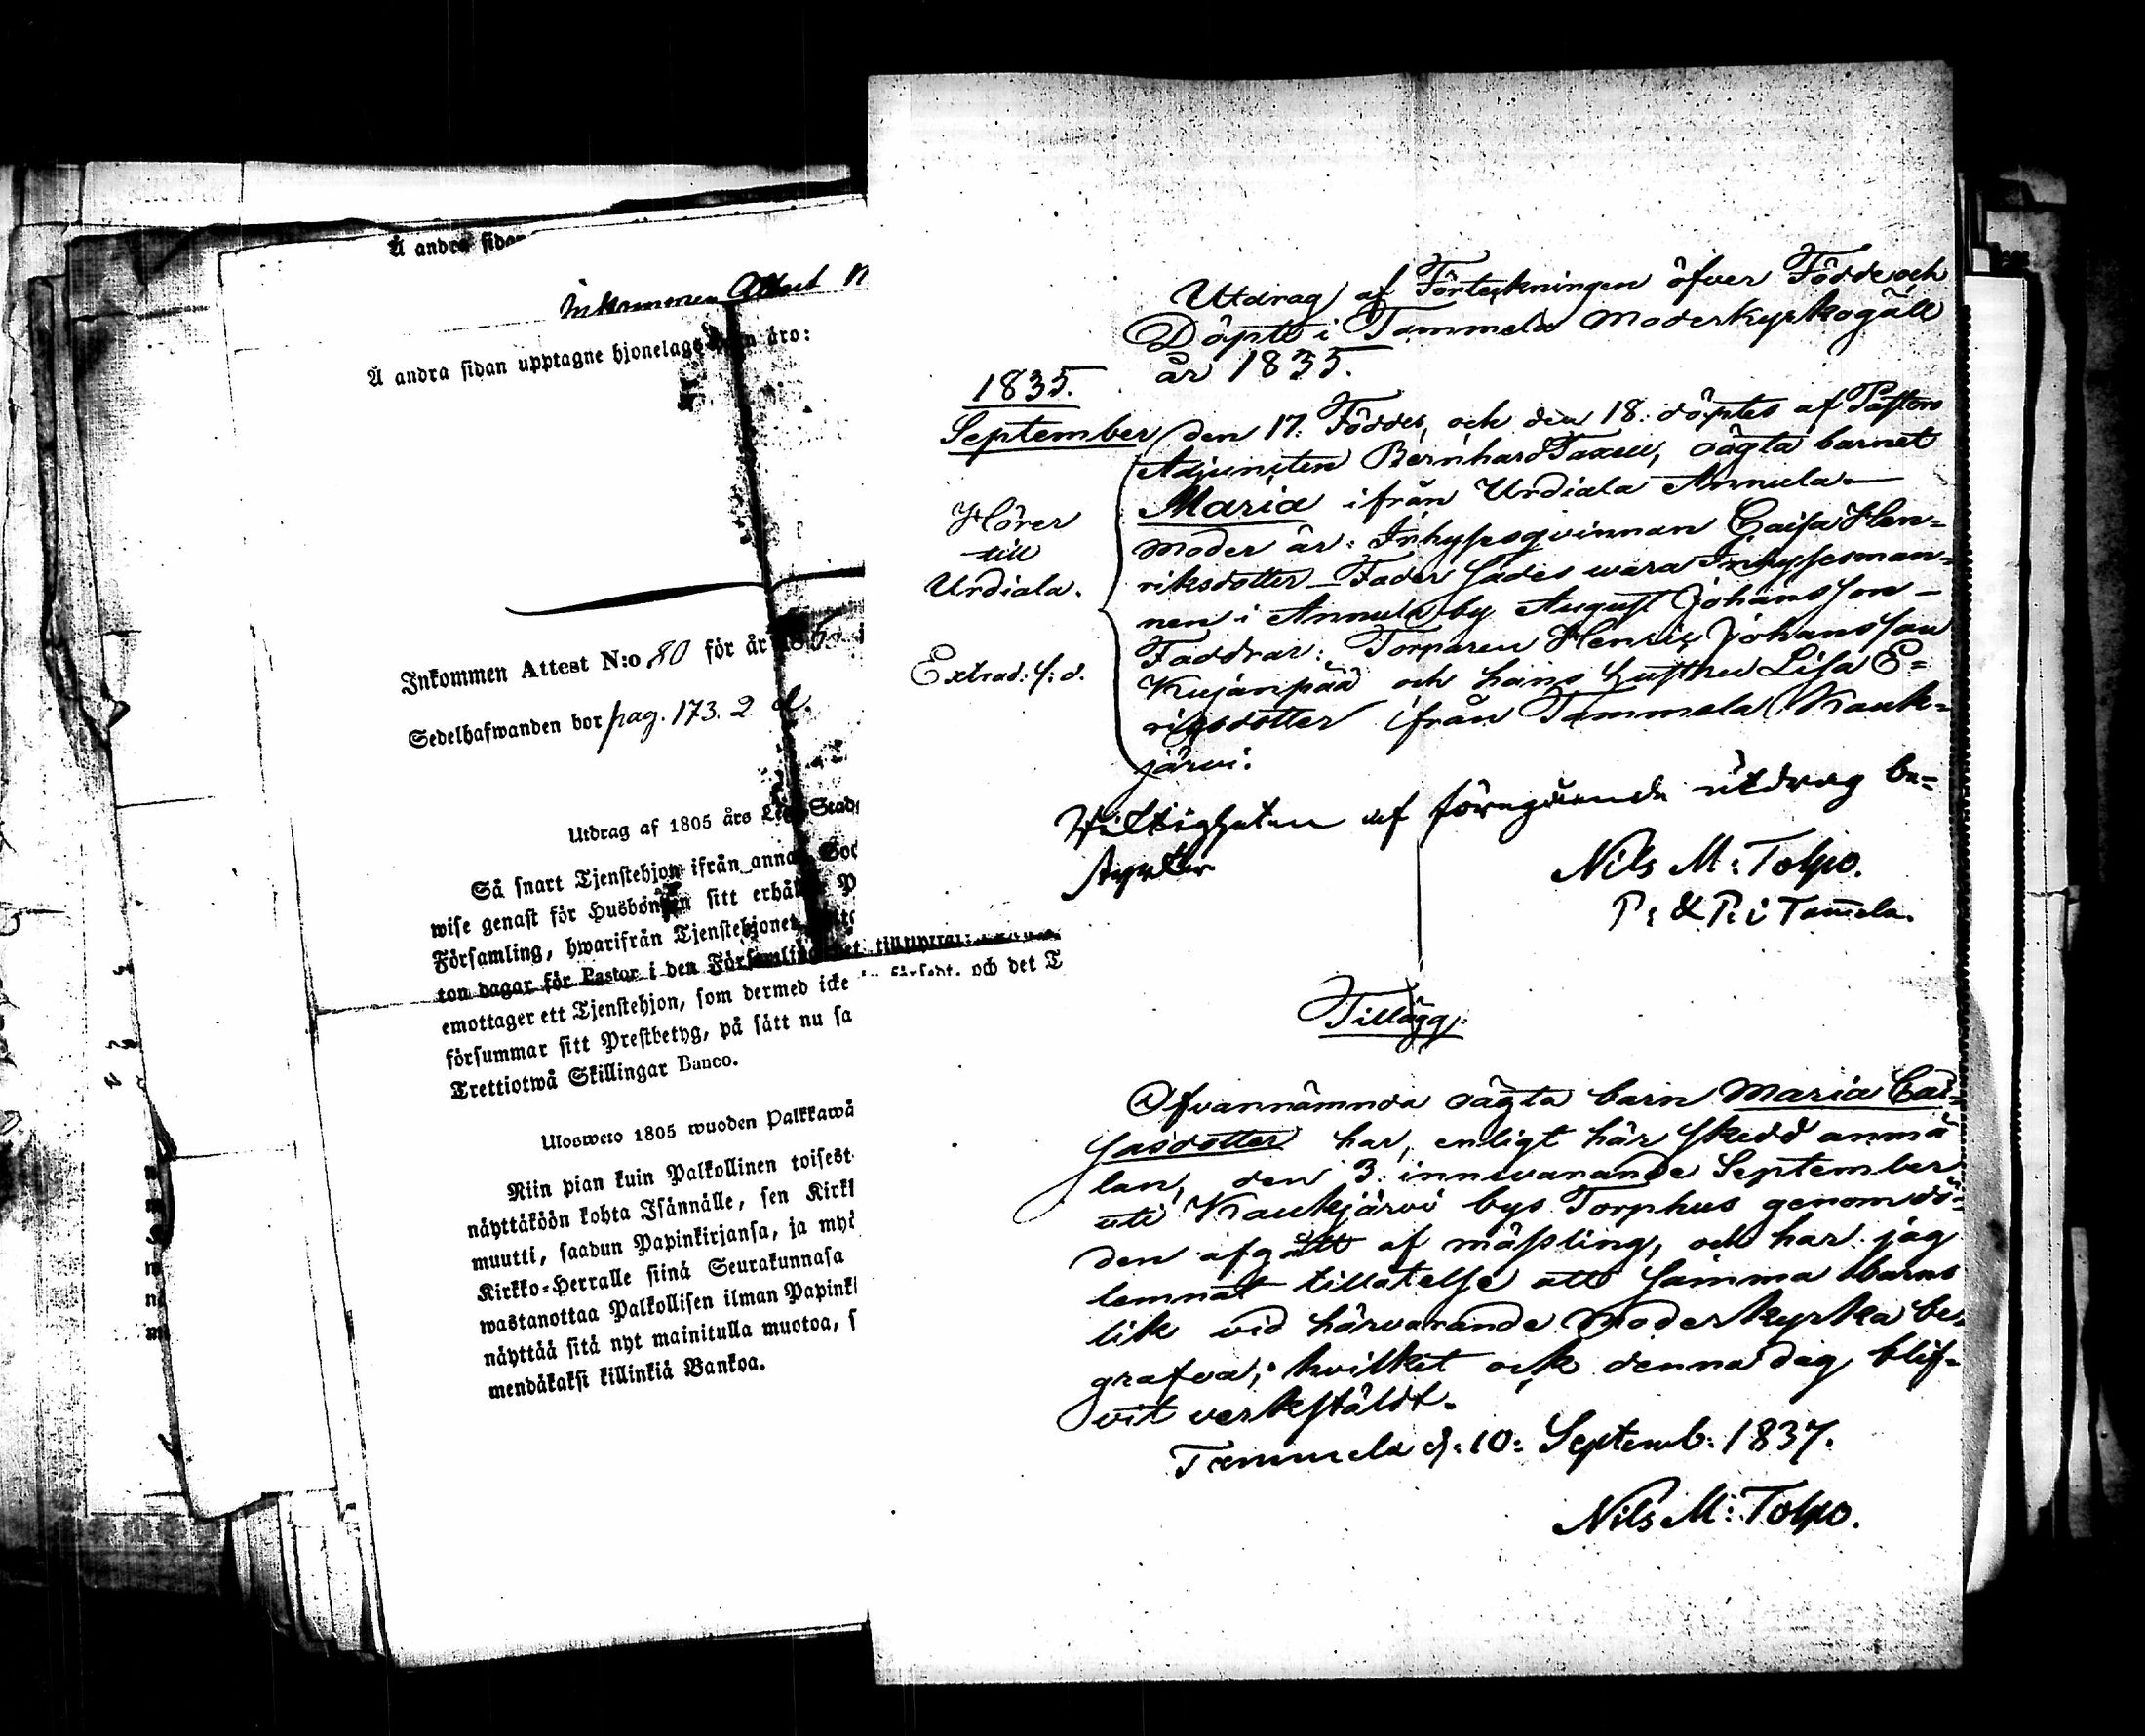 Å andra sidan
Inkommen Attest N
Å andra sidan upptagne hjonelags barn äro:
Inkommen Attest N:o 80 för år 18
Sedelhafwanden bor pag. 173. 2 d.
Utdrag af 1805 års Lego-Stad
Så snart Tjenstehjon ifrån annan Soc
wise genast för Husbonden sitt erhåll P
Församling, hwarifrån Tjenstehjonet
ton dagar för Pastor i den Församling det
emottager ett Tjenstehjon, som dermed icke är försedt, och det T
försummar sitt Prestbetyg, på sätt nu sa
Trettiotwå Skillingar Banco.
Ulosweto 1805 wuoden Palkkawä
Niin pian kuin Palkollinen toisest
näyttäköön kohta Isännälle, sen Kirkk
muutti, saadun Papinkirjansa, ja myö
Kirkko-Herralle siinä Seurakunnasa
wastanottaa Palkollisen ilman Papinki
näyttää sitä nyt mainitulla muotoa, s
mendäkaksi killinkiä Bankoa.
Utdrag af Förteckningen öfver Födde och
Döpte i Tammela Moderkyrkogäll
år 1835.
1835.
September den 17: Föddes, och den 18: döptes af Pastors
Adjuncten Bernhard Taxell, oägta barnet
Maria ifrån Urdiala Annula.—
Moder är: Inhysesqvinnan Caisa Hen=
riksdotter — Fader sades wara Inhysesman=
nen i Annula by August Johansson —
Faddrar: Torparen Henric Johansson
Kujanpää och hans hustru Lisa E=
ricsdotter ifrån Tammela Kauk=
järvi.
Hörer
till
Urdiala.
Extrad: s: d.
Riktigheten af föregående utdrag be=
styrker
Nils M: Tolpo.
P: & P: i Tamela.
Tillägg:
Ofvannämnda oägta barn Maria Cai=
sasdotter har, enligt här skedd anmä
lan, den 3: innevarande September
uti Kaukjärvi bys Torphus genom dö=
den afgått af mässling, och har jag
lemnat tillåtelse att samma barns
lik vid härvarande Moderkyrka be=
grafva; hvilket ock denna dag blif=
vit verkstäldt.
Tammela d: 10: Septemb: 1837.
Nils M: Tolpo.